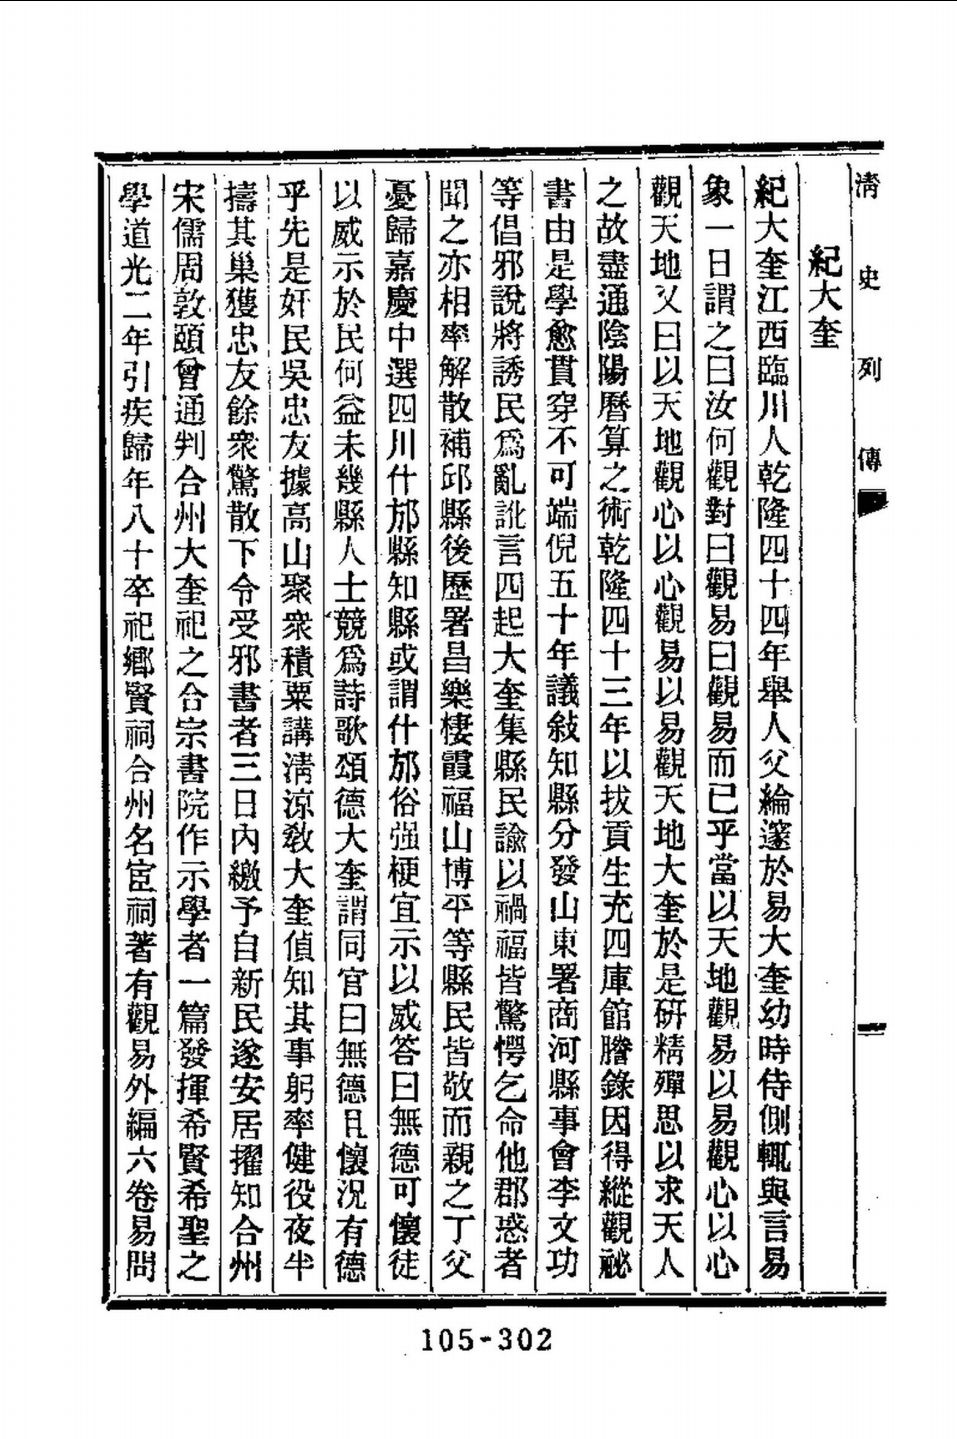 清史列傳
一
紀大奎
紀大奎江西臨川人乾隆四十四年舉人父綸邃於易大奎幼時侍側輒與言易
象一日謂之曰汝何觀對曰觀易曰觀易而已乎當以天地觀易以易觀心以心
觀天地又曰以天地觀心以心觀易以易觀天地大奎於是硏精殫思以求天人
之故盡通陰陽曆算之術乾隆四十三年以拔貢生充四庫館謄錄因得縱觀祕
書由是學愈貫穿不可端倪五十年議敍知縣分發山東署商河縣事會李文功
等倡邪說將誘民爲亂訛言四起大奎集縣民諭以禍福皆驚愕乞命他郡惑者
聞之亦相率解散補邱縣後歷署昌樂棲霞福山博平等縣民皆敬而親之丁父
憂歸嘉慶中選四川什邡縣知縣或謂什邡俗强梗宜示以威答曰無德可懷徒
以威示於民何益未幾縣人士競爲詩歌頌德大奎謂同官曰無德且懷況有德
乎先是奸民吳忠友據高山聚衆積粟講淸涼敎大奎偵知其事躬率健役夜半
擣其巢獲忠友餘衆驚散下令受邪書者三日內繳予自新民遂安居擢知合州
宋儒周敦頤曾通判合州大奎祀之合宗書院作示學者一篇發揮希賢希聖之
學道光二年引疾歸年八十卒祀鄕賢祠合州名宦祠著有觀易外編六卷易問
105-302